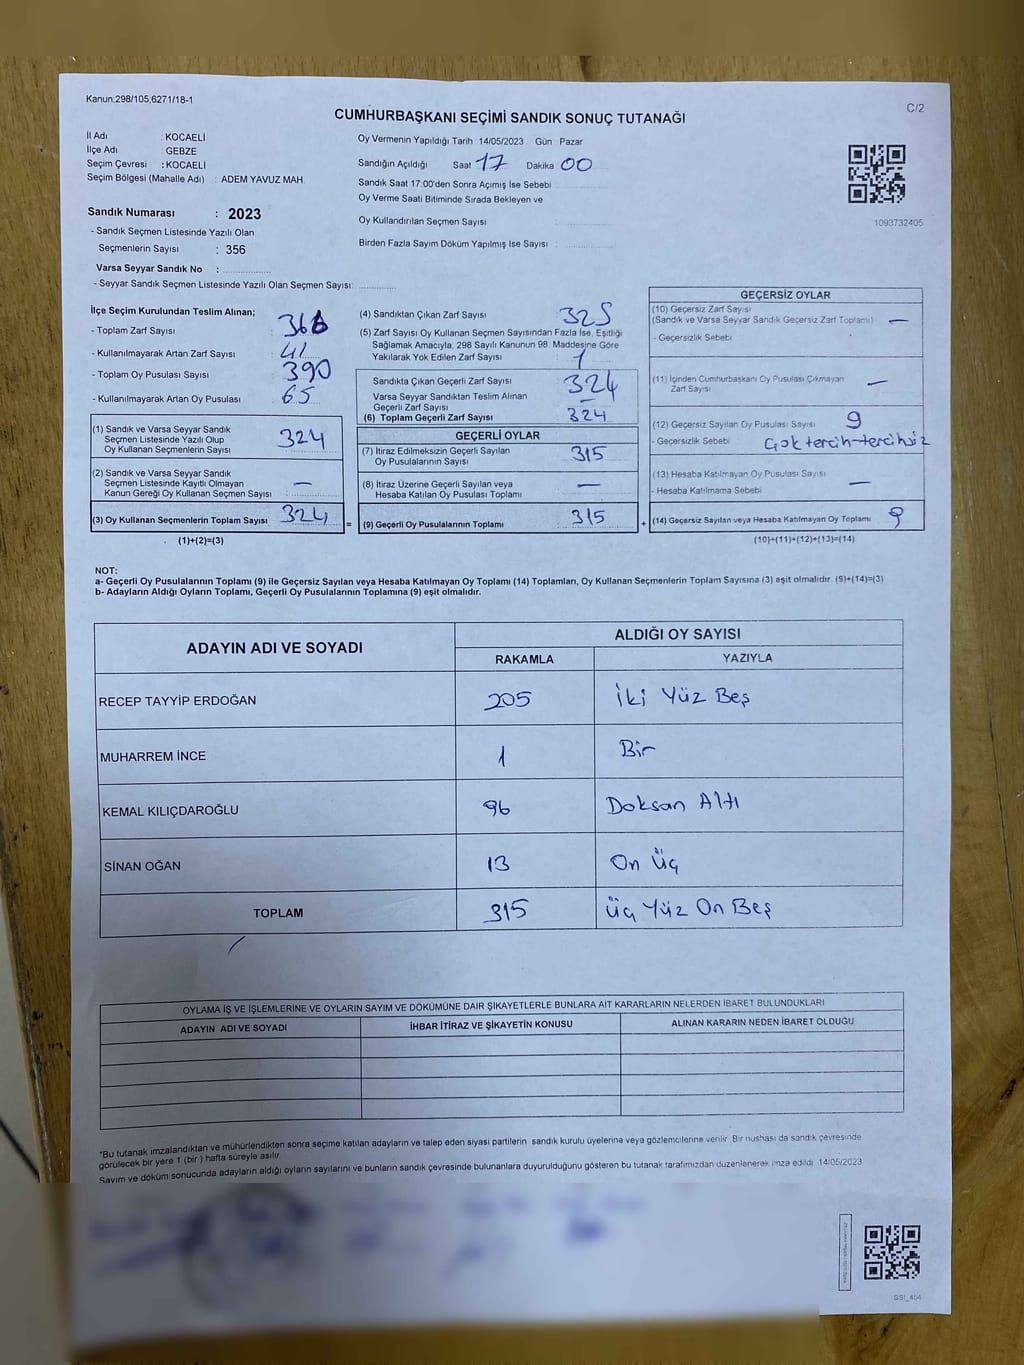 Kanun.298/105,6271/18-1
C/2
CUMHURBAŞKANI SEÇİMİ SANDIK SONUÇ TUTANAĞI
İl Adı : KOCAELİ
İlçe Adı : GEBZE
Seçim Çevresi : KOCAELİ
Seçim Bölgesi (Mahalle Adı) : ADEM YAVUZ MAH.
Sandık Numarası : 2023
- Sandık Seçmen Listesinde Yazılı Olan
Seçmenlerin Sayısı : 356
Varsa Seyyar Sandık No :
- Seyyar Sandık Seçmen Listesinde Yazılı Olan Seçmen Sayısı:
Oy Vermenin Yapıldığı Tarih 14/05/2023 Gün Pazar
Sandığın Açıldığı Saat 17 Dakika 00
Sandık Saat 17:00'den Sonra Açımış İse Sebebi
Oy Verme Saati Bitiminde Sırada Bekleyen ve
Oy Kullandırılan Seçmen Sayısı :
Birden Fazla Sayım Döküm Yapılmış İse Sayısı :
1093732405
İlçe Seçim Kurulundan Teslim Alınan;
- Toplam Zarf Sayısı : 366
- Kullanılmayarak Artan Zarf Sayısı : 41
- Toplam Oy Pusulası Sayısı : 390
- Kullanılmayarak Artan Oy Pusulası : 65
(1) Sandık ve Varsa Seyyar Sandık
Seçmen Listesinde Yazılı Olup
Oy Kullanan Seçmenlerin Sayısı : 324
(2) Sandık ve Varsa Seyyar Sandık
Seçmen Listesinde Kayıtlı Olmayan
Kanun Gereği Oy Kullanan Seçmen Sayısı : —
(3) Oy Kullanan Seçmenlerin Toplam Sayısı : 324
(1)+(2)=(3)
(4) Sandıktan Çıkan Zarf Sayısı : 325
(5) Zarf Sayısı Oy Kullanan Seçmen Sayısından Fazla İse, Eşitliği
Sağlamak Amacıyla, 298 Sayılı Kanunun 98. Maddesine Göre
Yakılarak Yok Edilen Zarf Sayısı : 1
Sandıkta Çıkan Geçerli Zarf Sayısı : 324
Varsa Seyyar Sandıktan Teslim Alınan
Geçerli Zarf Sayısı : —
(6) Toplam Geçerli Zarf Sayısı : 324
GEÇERLİ OYLAR
(7) İtiraz Edilmeksizin Geçerli Sayılan
Oy Pusulalarının Sayısı : 315
(8) İtiraz Üzerine Geçerli Sayılan veya
Hesaba Katılan Oy Pusulası Toplamı : —
= (9) Geçerli Oy Pusulalarının Toplamı : 315
GEÇERSİZ OYLAR
(10) Geçersiz Zarf Sayısı
(Sandık ve Varsa Seyyar Sandık Geçersiz Zarf Toplamı) : —
- Geçersizlik Sebebi :
(11) İçinden Cumhurbaşkanı Oy Pusulası Çıkmayan
Zarf Sayısı : —
(12) Geçersiz Sayılan Oy Pusulası Sayısı : 9
- Geçersizlik Sebebi : Çok tercih-tercihsiz
(13) Hesaba Katılmayan Oy Pusulası Sayısı : —
- Hesaba Katılmama Sebebi :
+ (14) Geçersiz Sayılan veya Hesaba Katılmayan Oy Toplamı : 9
(10)+(11)+(12)+(13)=(14)
NOT:
a- Geçerli Oy Pusulalarının Toplamı (9) ile Geçersiz Sayılan veya Hesaba Katılmayan Oy Toplamı (14) Toplamları, Oy Kullanan Seçmenlerin Toplam Sayısına (3) eşit olmalıdır. (9)+(14)=(3)
b- Adayların Aldığı Oyların Toplamı, Geçerli Oy Pusulalarının Toplamına (9) eşit olmalıdır.
ADAYIN ADI VE SOYADI
ALDIĞI OY SAYISI
RAKAMLA YAZIYLA
RECEP TAYYİP ERDOĞAN 205 İki Yüz Beş
MUHARREM İNCE 1 Bir
KEMAL KILIÇDAROĞLU 96 Doksan Altı
SİNAN OĞAN 13 On Üç
TOPLAM 315 Üç Yüz On Beş
OYLAMA İŞ VE İŞLEMLERİNE VE OYLARIN SAYIM VE DÖKÜMÜNE DAİR ŞİKAYETLERLE BUNLARA AİT KARARLARIN NELERDEN İBARET BULUNDUKLARI
ADAYIN ADI VE SOYADI İHBAR İTİRAZ VE ŞİKAYETİN KONUSU ALINAN KARARIN NEDEN İBARET OLDUĞU
*Bu tutanak imzalandıktan ve mühürlendikten sonra seçime katılan adayların ve talep eden siyasi partilerin sandık kurulu üyelerine veya gözlemcilerine verilir. Bir nushası da sandık çevresinde
görülecek bir yere 1 (bir ) hafta süreyle asılır.
Sayım ve döküm sonucunda adayların aldığı oyların sayılarını ve bunların sandık çevresinde bulunanlara duyurulduğunu gösteren bu tutanak tarafımızdan düzenlenerek imza edildi. 14/05/2023